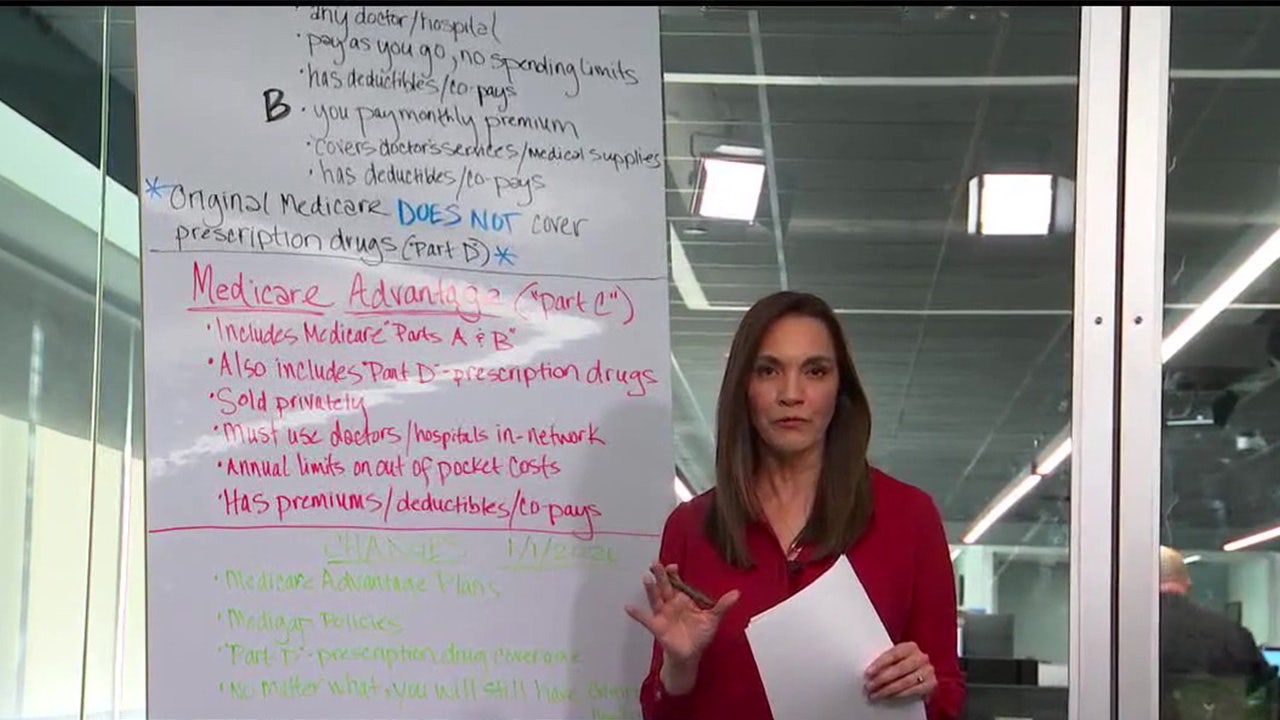 any doctor/hospital
• pay as you go, no spending limits
• has deductibles/co-pays
B • you pay monthly premium
• covers doctor's services/medical supplies
• has deductibles/co-pays
*Original Medicare DOES NOT cover
prescription drugs ("Part D")*
Medicare Advantage ("part C")
• Includes Medicare "Parts A & B"
• Also includes "Part D" - prescription drugs
• Sold privately
• must use doctors/hospitals in-network
• Annual limits on out of pocket costs
• Has premiums/deductibles/co-pays
CHANGES 1/1/2026
• Medicare Advantage Plans
• Medigap Policies
• "Part D" - prescription drug coverage
• No matter what, you will still have